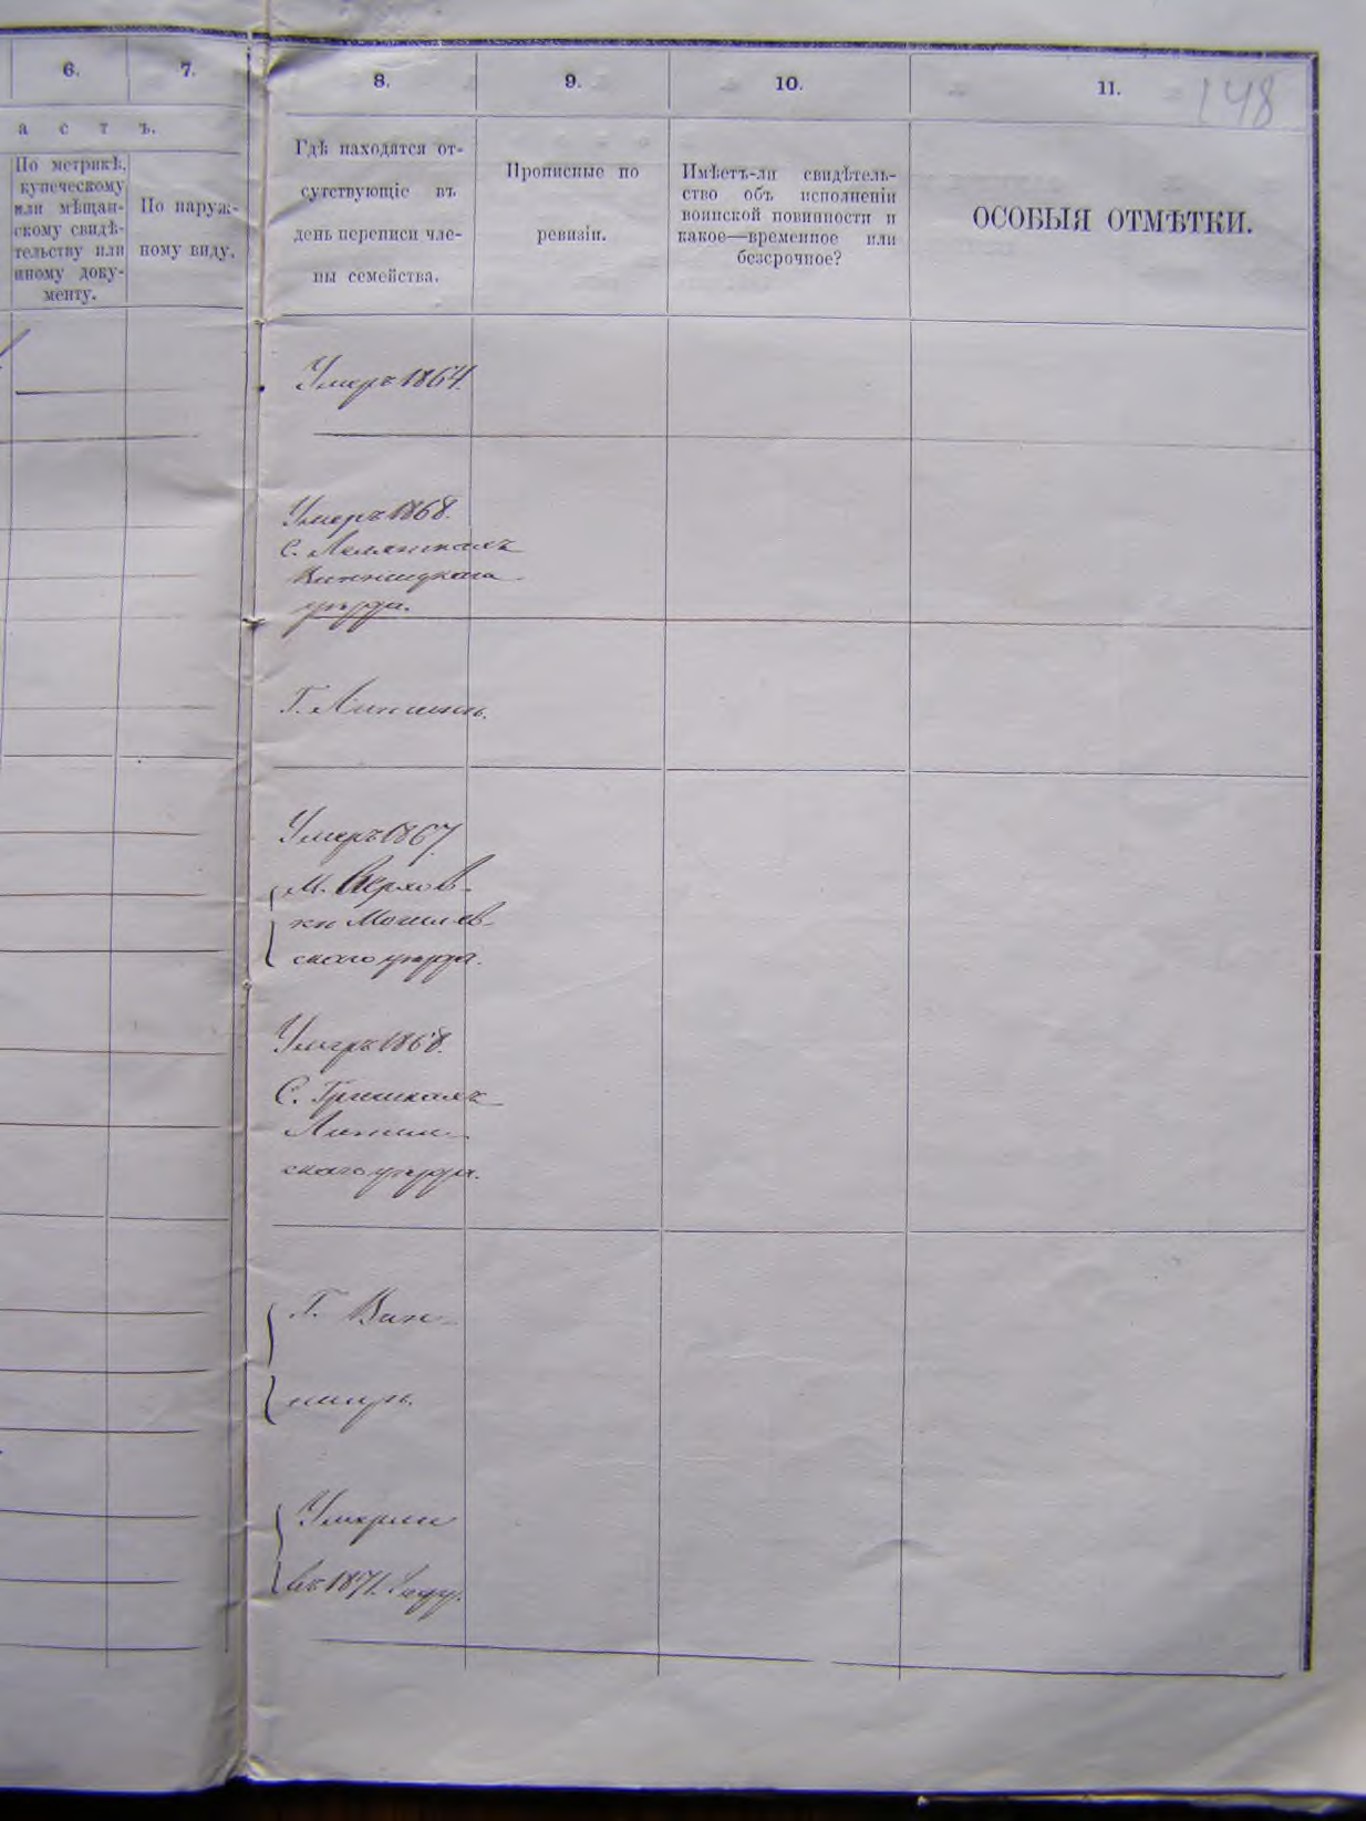 6.
7.
8.
9.
10.
11.
148
а с т ъ.
По метрикѣ,
купеческому
или мѣщан-
скому свидѣ-
тельству или
иному доку-
менту.
По наруж-
ному виду.
Гдѣ находятся от-
сутствующіе въ
день переписи чле-
ны семейства.
Прописные по
ревизіи.
Имѣетъ-ли свидѣтель-
ство объ исполненіи
воинской повинности и
какое—временное или
безсрочное?
ОСОБЫЯ ОТМѢТКИ.
Умеръ 1864.
Умеръ 1868.
С.
Винницкаго
уѣзда.
Г.
Умеръ 1867
М. Верхов-
ки Могилев-
скаго уѣзда.
Умеръ 1868.
С. Гришкахъ
Литин-
скаго уѣзда.
Г. Вин-
ницѣ.
Умерли
въ 1871. году.